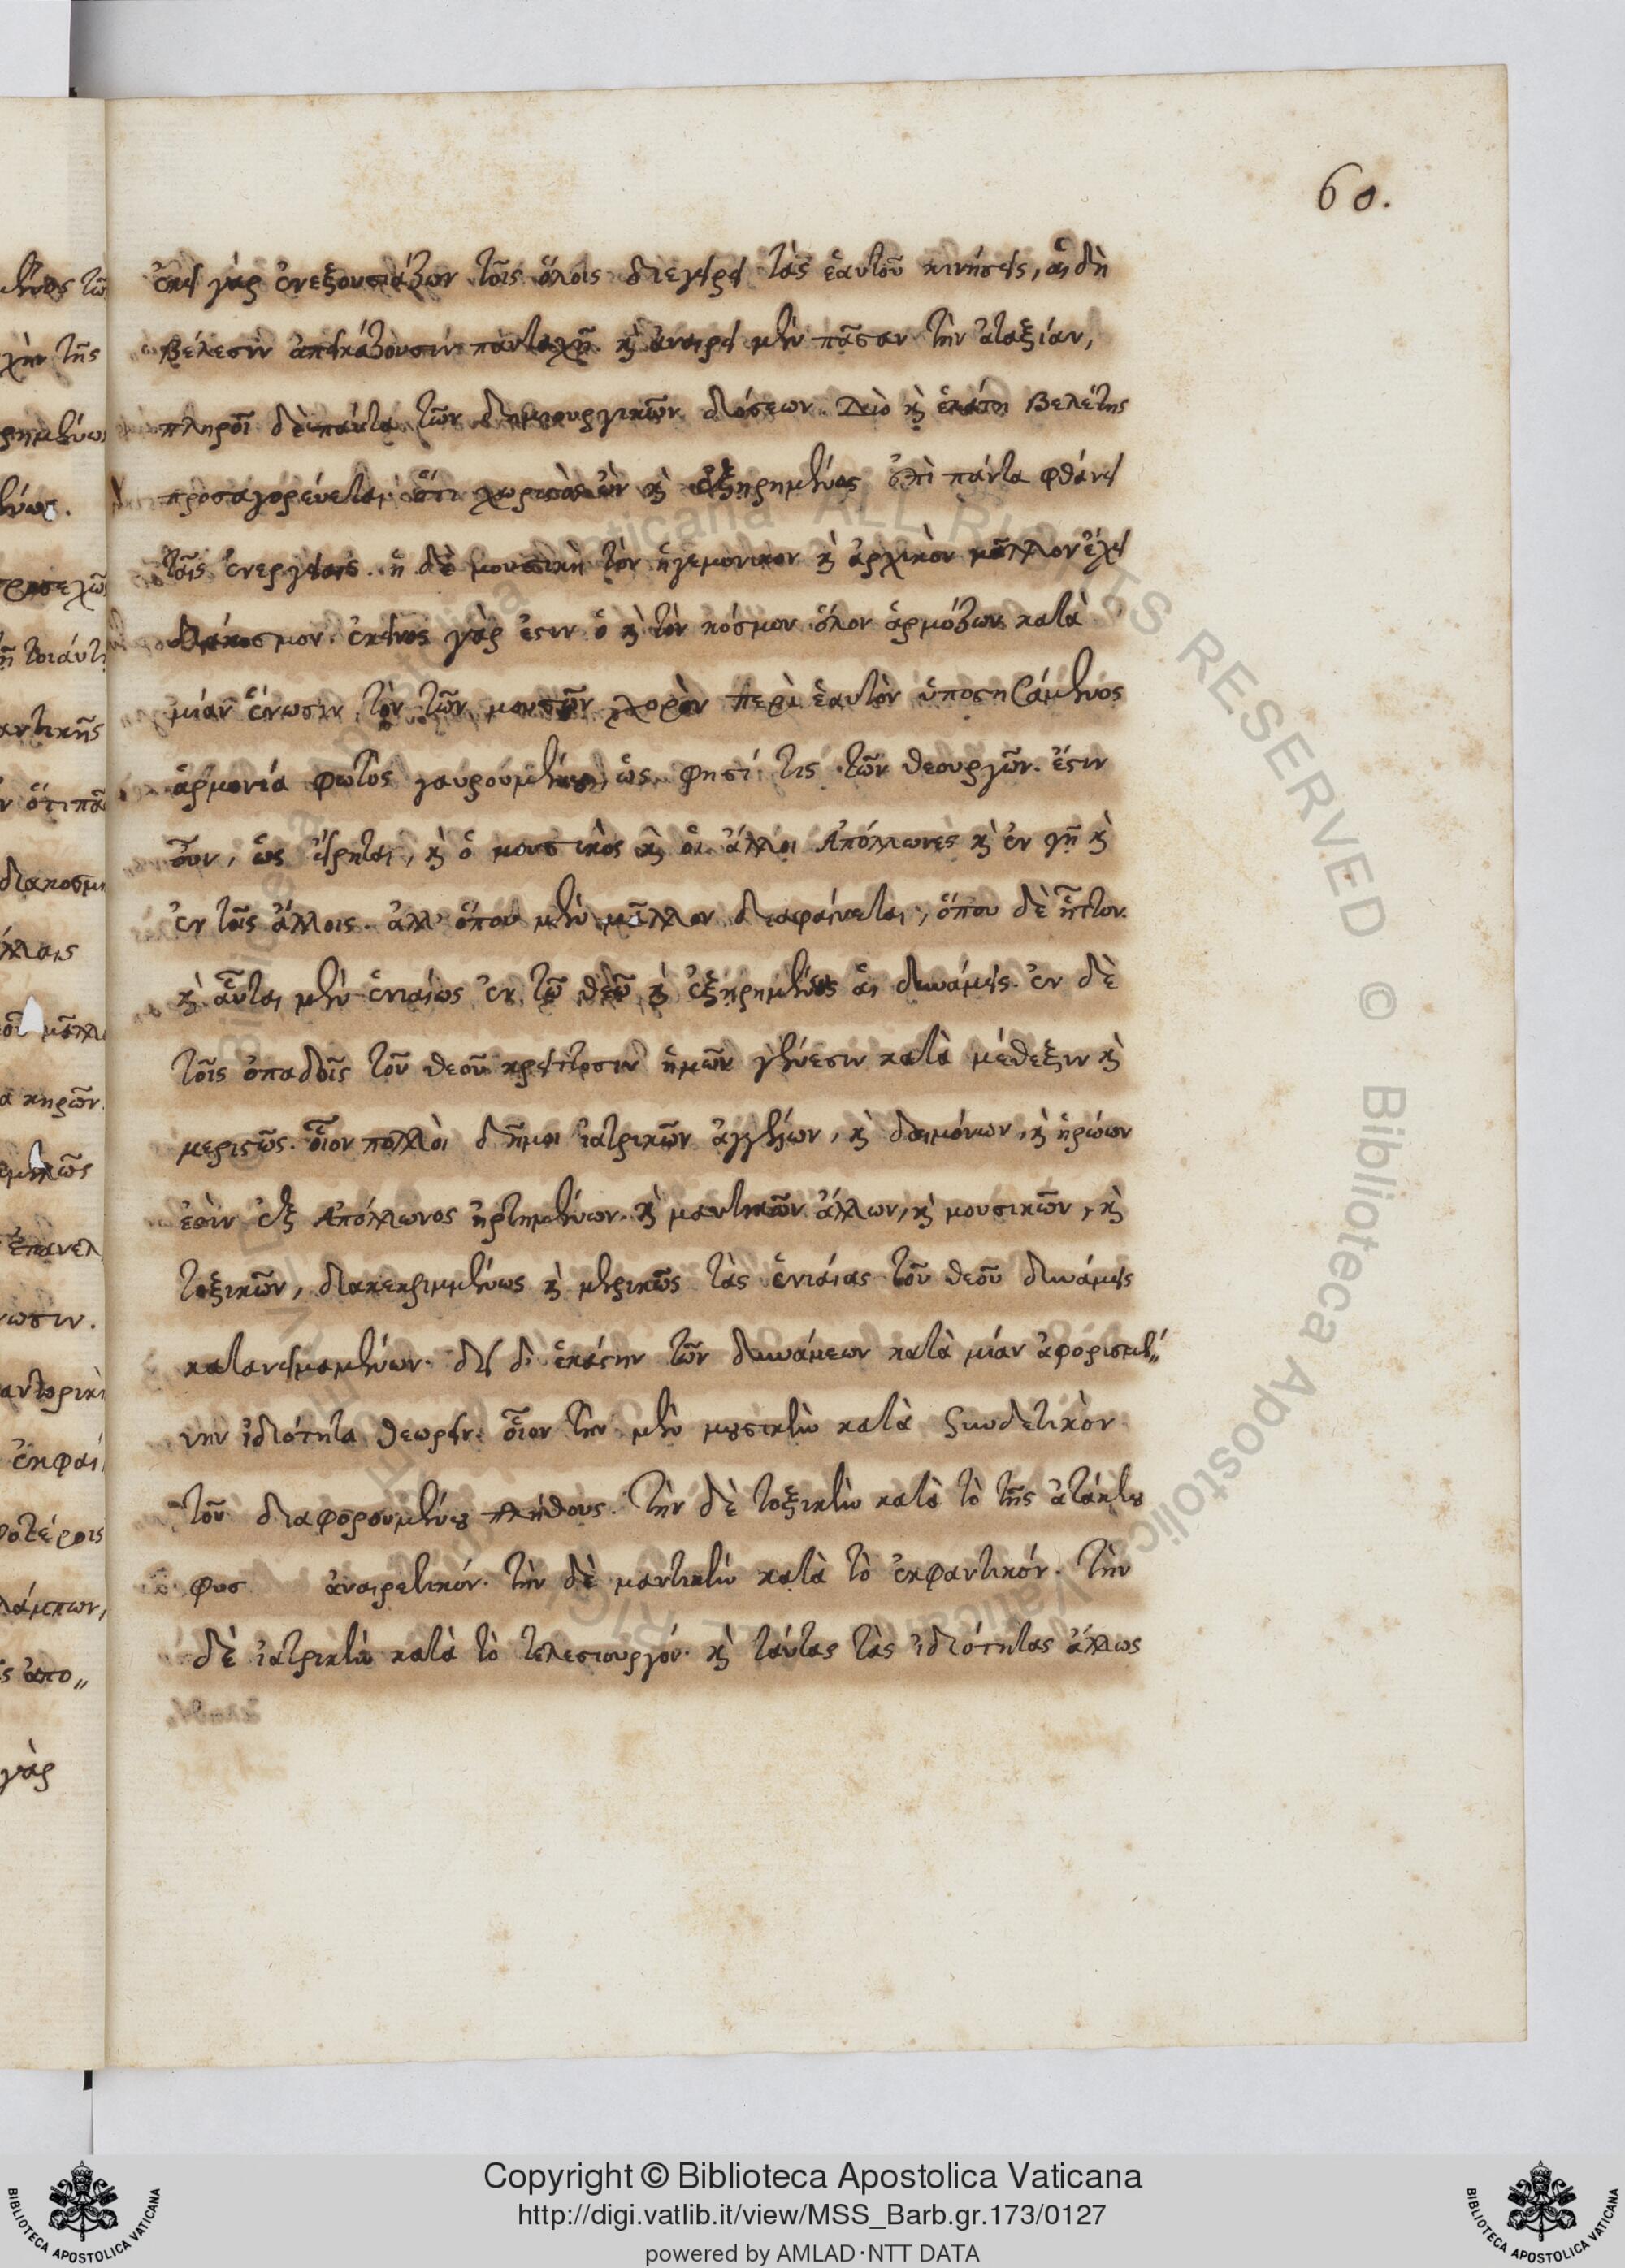 60.
ἐκεῖ γὰρ ἐνεξουσιάζων τοῖς ὅλοις διεγείρει τὰς ἑαυτοῦ κινήσεις, αἳ δὴ
βέλεσιν ἀπεικάζουσιν πανταχῆ καὶ ἀναιρεῖ μὲν πᾶσαν τὴν ἀταξίαν,
πληροῖ δὲ πάντα τῶν δημιουργικῶν δόσεων. Διὸ καὶ Βελέτης
προσαγορεύεται, ὅτι χωριστὸς ὢν καὶ ἐξῃρημένος ἐπὶ πάντα φθάνει
ταῖς ἐνεργείαις. ἡ δὲ μουσικὴ τὸν ἡγεμονικον καὶ ἀρχικὸν μᾶλλον ἔχει
διάκοσμον. ἐκεῖνος γάρ ἐστιν ὁ καὶ τὸν κόσμον ὅλον ἁρμόζων κατὰ
μίαν ἕνωσιν, τὸν τῶν μουσῶν χορὸν περὶ ἑαυτὸν ὑποστησάμενος
ἁρμονία φωτὸς γαυρούμενος, ὥς φησί τις τῶν θεουργῶν. ἔστιν
οὖν, ὡς εἴρηται, καὶ ὁ μουσικὸς καὶ οἱ ἄλλοι Ἀπόλλωνες καὶ ἐν γῆ καὶ
ἐν τοῖς ἄλλοις. ἀλλ' ὅπου μὲν μᾶλλον διαφαίνεται, ὅπου δὲ ἧττον.
καὶ αὗται μὲν ἑνιαίως ἐν τῶ θεῶ καὶ ἐξῃρημένως αἱ δυνάμεις. ἐν δὲ
τοῖς ὀπαδοῖς τοῦ θεοῦ κρείττοσιν ἡμῶν γένεσιν κατὰ μέθεξιν καὶ
μεριστῶς. οἷον πολλοὶ δῆμοι ἰατρικῶν ἀγγέλων, καὶ δαιμόνων, καὶ ἡρώων
εἰσὶν ἐξ Ἀπόλλωνος ἠρτημένων. καὶ μαντικῶν ἄλλων, καὶ μουσικῶν, καὶ
τοξικῶν, διακεκριμμένως καὶ μερικῶς τὰς ἑνιαίας τοῦ θεοῦ δυνάμεις
κατανειμαμένων. δεῖ δὲ ἑκάστην τῶν δυνάμεων κατὰ μίαν ἀφορισμέ〃
νην ἰδιότητα θεωρεῖν. οἷον τὴν μὲν μουσικὴν κατὰ συνδετικὸν
τοῦ διαφορουμένου πλήθους. τὴν δὲ τοξικὴν κατὰ τὸ τῆς ἀτάκτου
φυσ ἀναιρετικόν. τὴν δὲ μαντικὴν κατὰ τὸ ἐκφαντικόν. τὴν
δὲ ἰατρικὴν κατὰ τὸ τελεσιουργόν. καὶ ταύτας τὰς ἰδιότητας ἄλλως
Copyright © Biblioteca Apostolica Vaticana
http://digi.vatlib.it/view/MSS_Barb.gr.173/0127
powered by AMLAD·NTT DATA